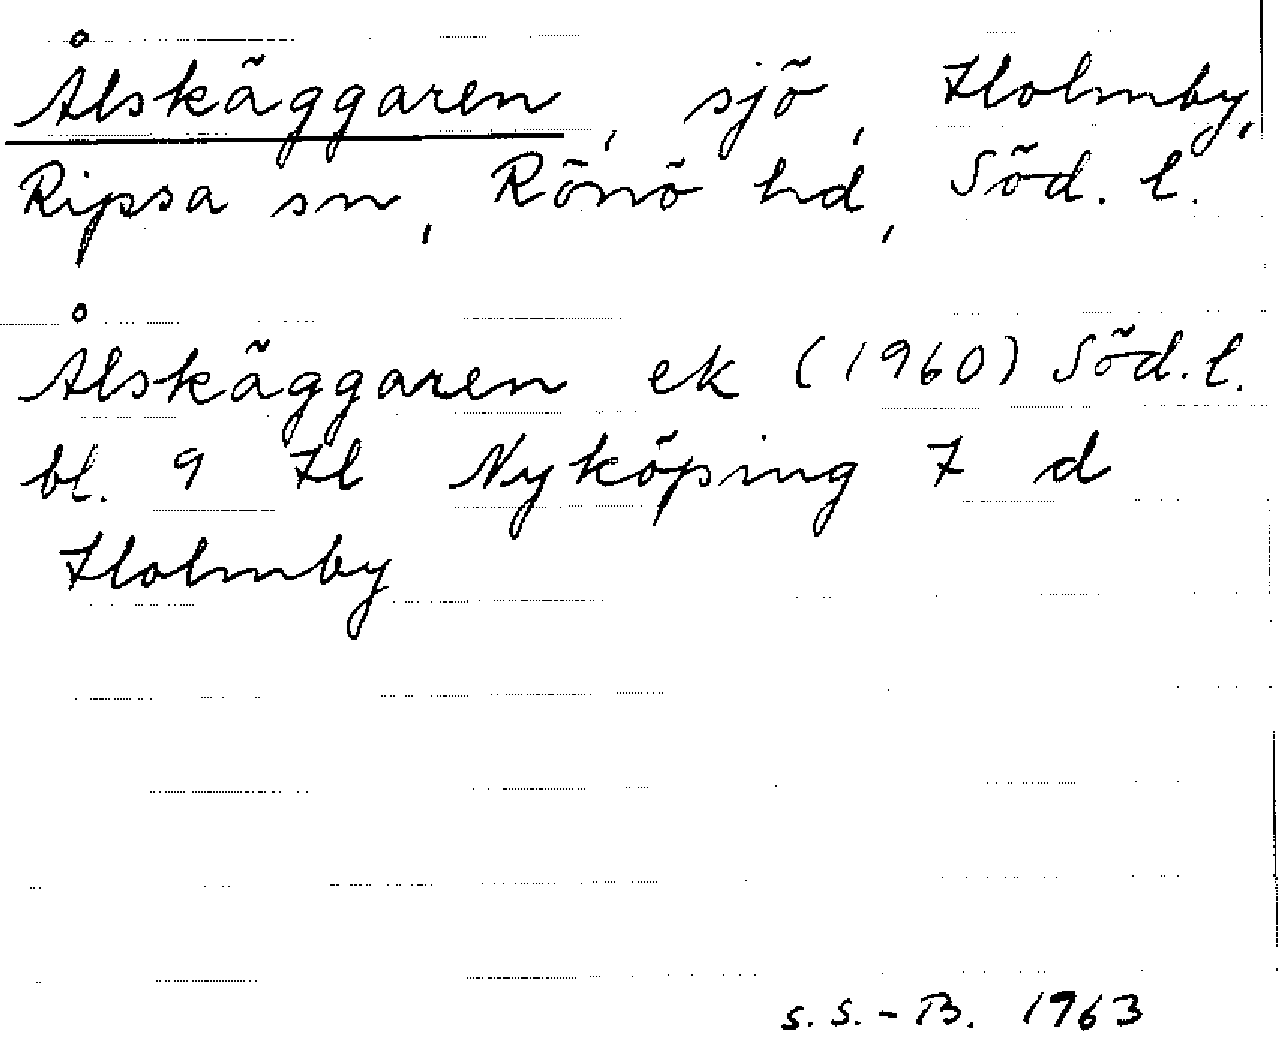 Ålskäggaren, sjö, Holmby,
Ripsa sn, Rönö hd, Söd. l.
Ålskäggaren ek (1960) Söd. l.
bl. 9 H Nyköping 7 d
Holmby
S. S.-B. 1963